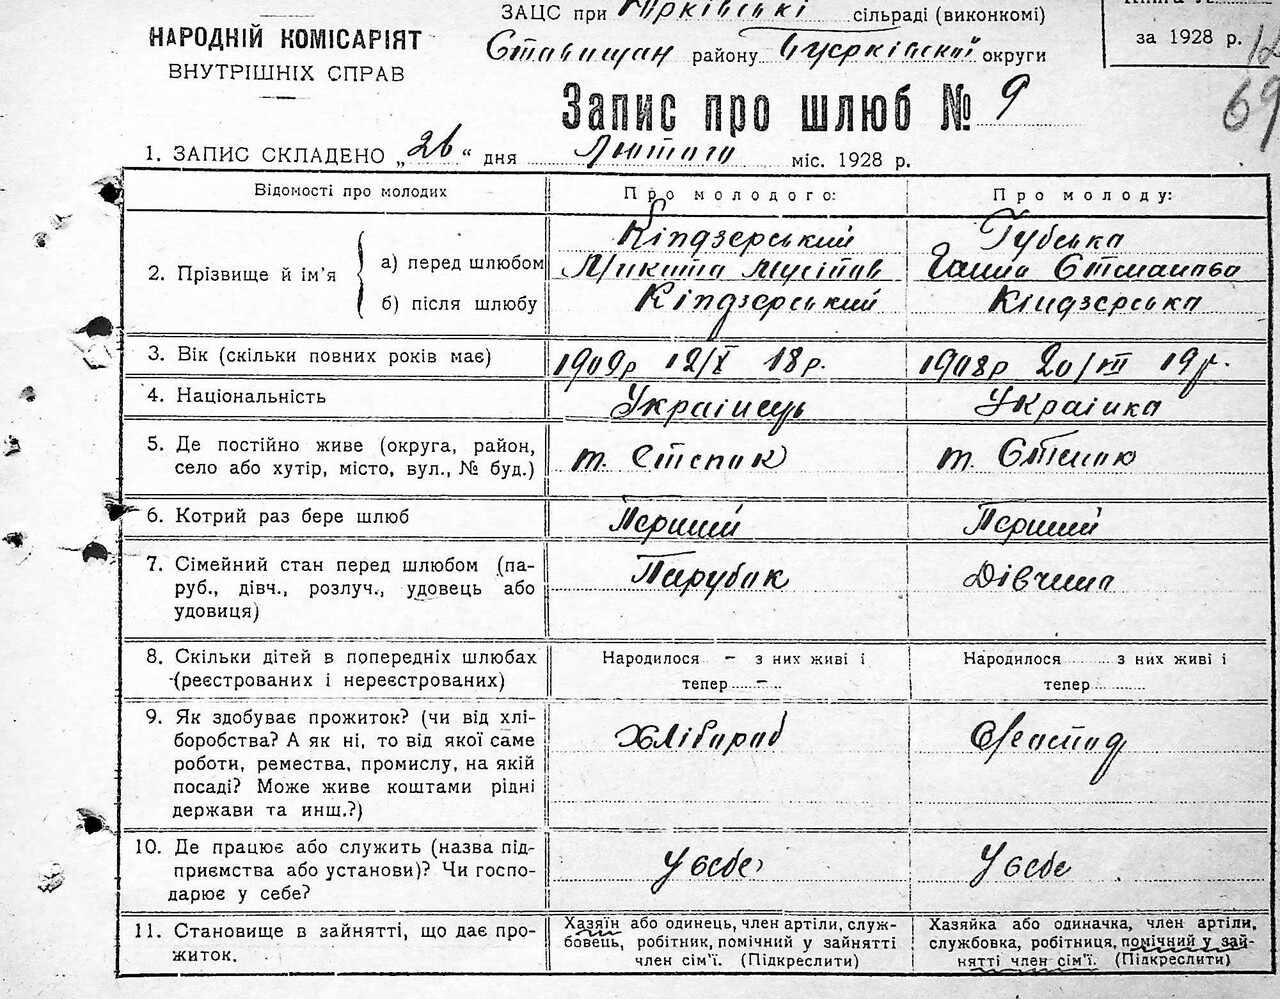 ЗАЦС при Юрківські сільраді (виконкомі)
НАРОДНІЙ КОМІСАРІЯТ
ВНУТРІШНІХ СПРАВ
Ставищан району округи
за 1928 р.
69
Запис про шлюб № 9
1. ЗАПИС СКЛАДЕНО „26“ дня Лютого міс. 1928 р.
Відомості про молодих Про молодого: Про молоду:
2. Прізвище й ім'я
а) перед шлюбом Кіндзерський Микита Губська Ганна
б) після шлюбу Кіндзерський Кіндзерська
3. Вік (скільки повних років має) 1909р 12/X 18р. 1908р 20/VII 19р.
4. Національність Українець Українка
5. Де постійно живе (округа, район,
село або хутір, місто, вул., № буд.) т. Степок т. Степок
6. Котрий раз бере шлюб Перший Перший
7. Сімейний стан перед шлюбом (па-
руб., дівч., розлуч., удовець або
удовиця) Парубок Дівчина
8. Скільки дітей в попередніх шлюбах
(реєстрованих і нереєстрованих)
Народилося – з них живі і
тепер –
Народилося з них живі і
тепер
9. Як здобуває прожиток? (чи від хлі-
боробства? А як ні, то від якої саме
роботи, ремества, промислу, на якій
посаді? Може живе коштами рідні
держави та инш.?) Хлібороб
10. Де працює або служить (назва під-
приємства або установи)? Чи госпо-
дарює у себе? У себе У себе
11. Становище в зайнятті, що дає про-
житок.
Хазяїн або одинець, член артіли, служ-
бовець, робітник, помічний у зайнятті
член сім'ї. (Підкреслити)
Хазяйка або одиначка, член артіли,
службовка, робітниця, помічний у зай-
нятті член сім'ї. (Підкреслити)